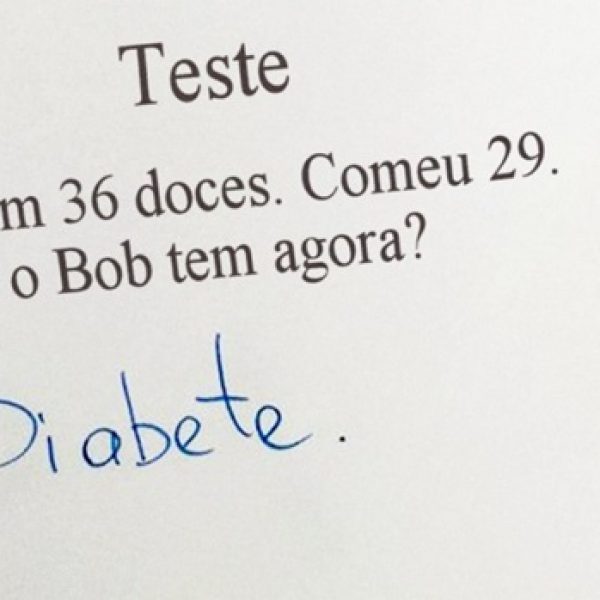 Teste
m 36 doces. Comeu 29.
o Bob tem agora?
Diabete.